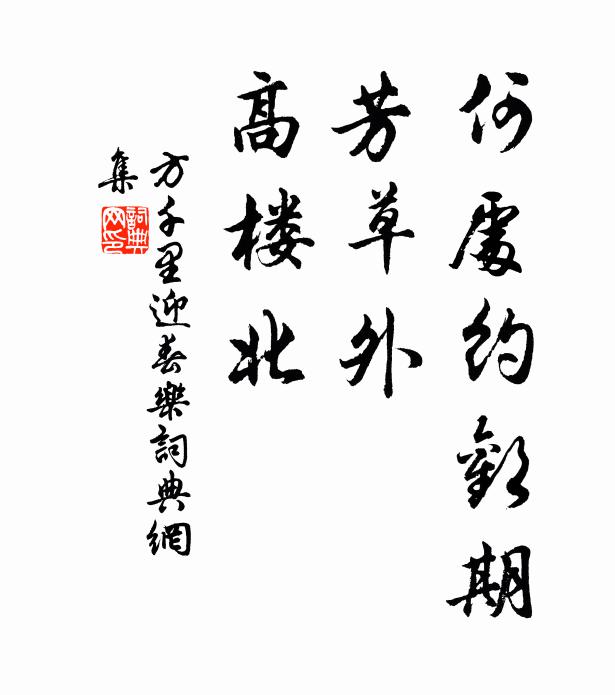 何處約歡期
芳草外
高楼北
方千里迎春樂詞典網
集
詞典
网印